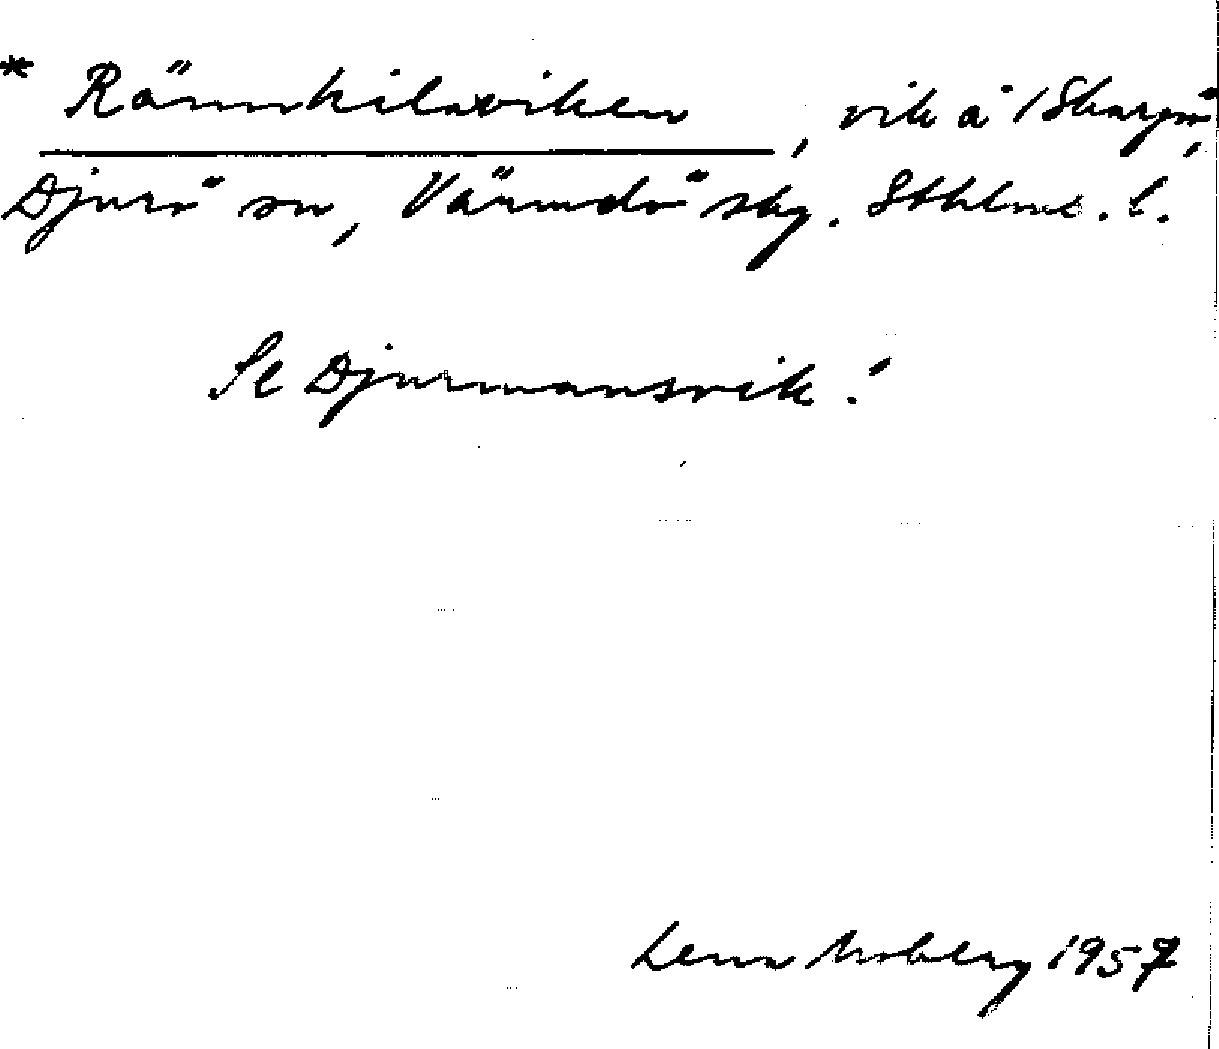 * Rännkilaviken, vik å /Skarpö,
Djurö sn, Värmdö skg. Sthlms. l.
Se Djurmansvik!
Lena Moberg 1957